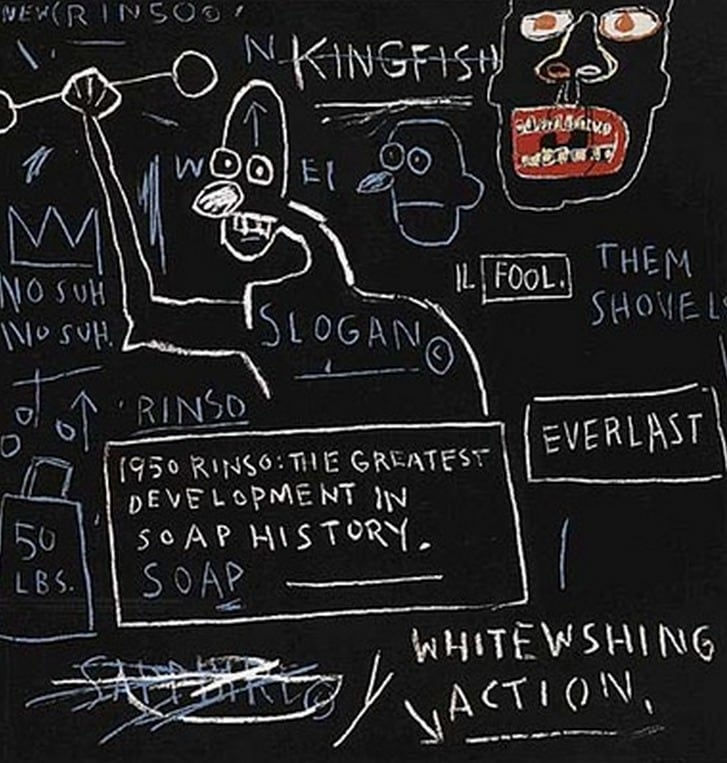 NEW(RINSO©
N KINGFISH
W EI
NO SUH
NO SUH.
SLOGAN©
IL FOOL.
THEM
SHOVEL
RINSO
1950 RINSO: THE GREATEST
DEVELOPMENT IN
SOAP HISTORY.
SOAP
EVERLAST
50
LBS.
SAPPHIRE©
WHITEWSHING
ACTION.